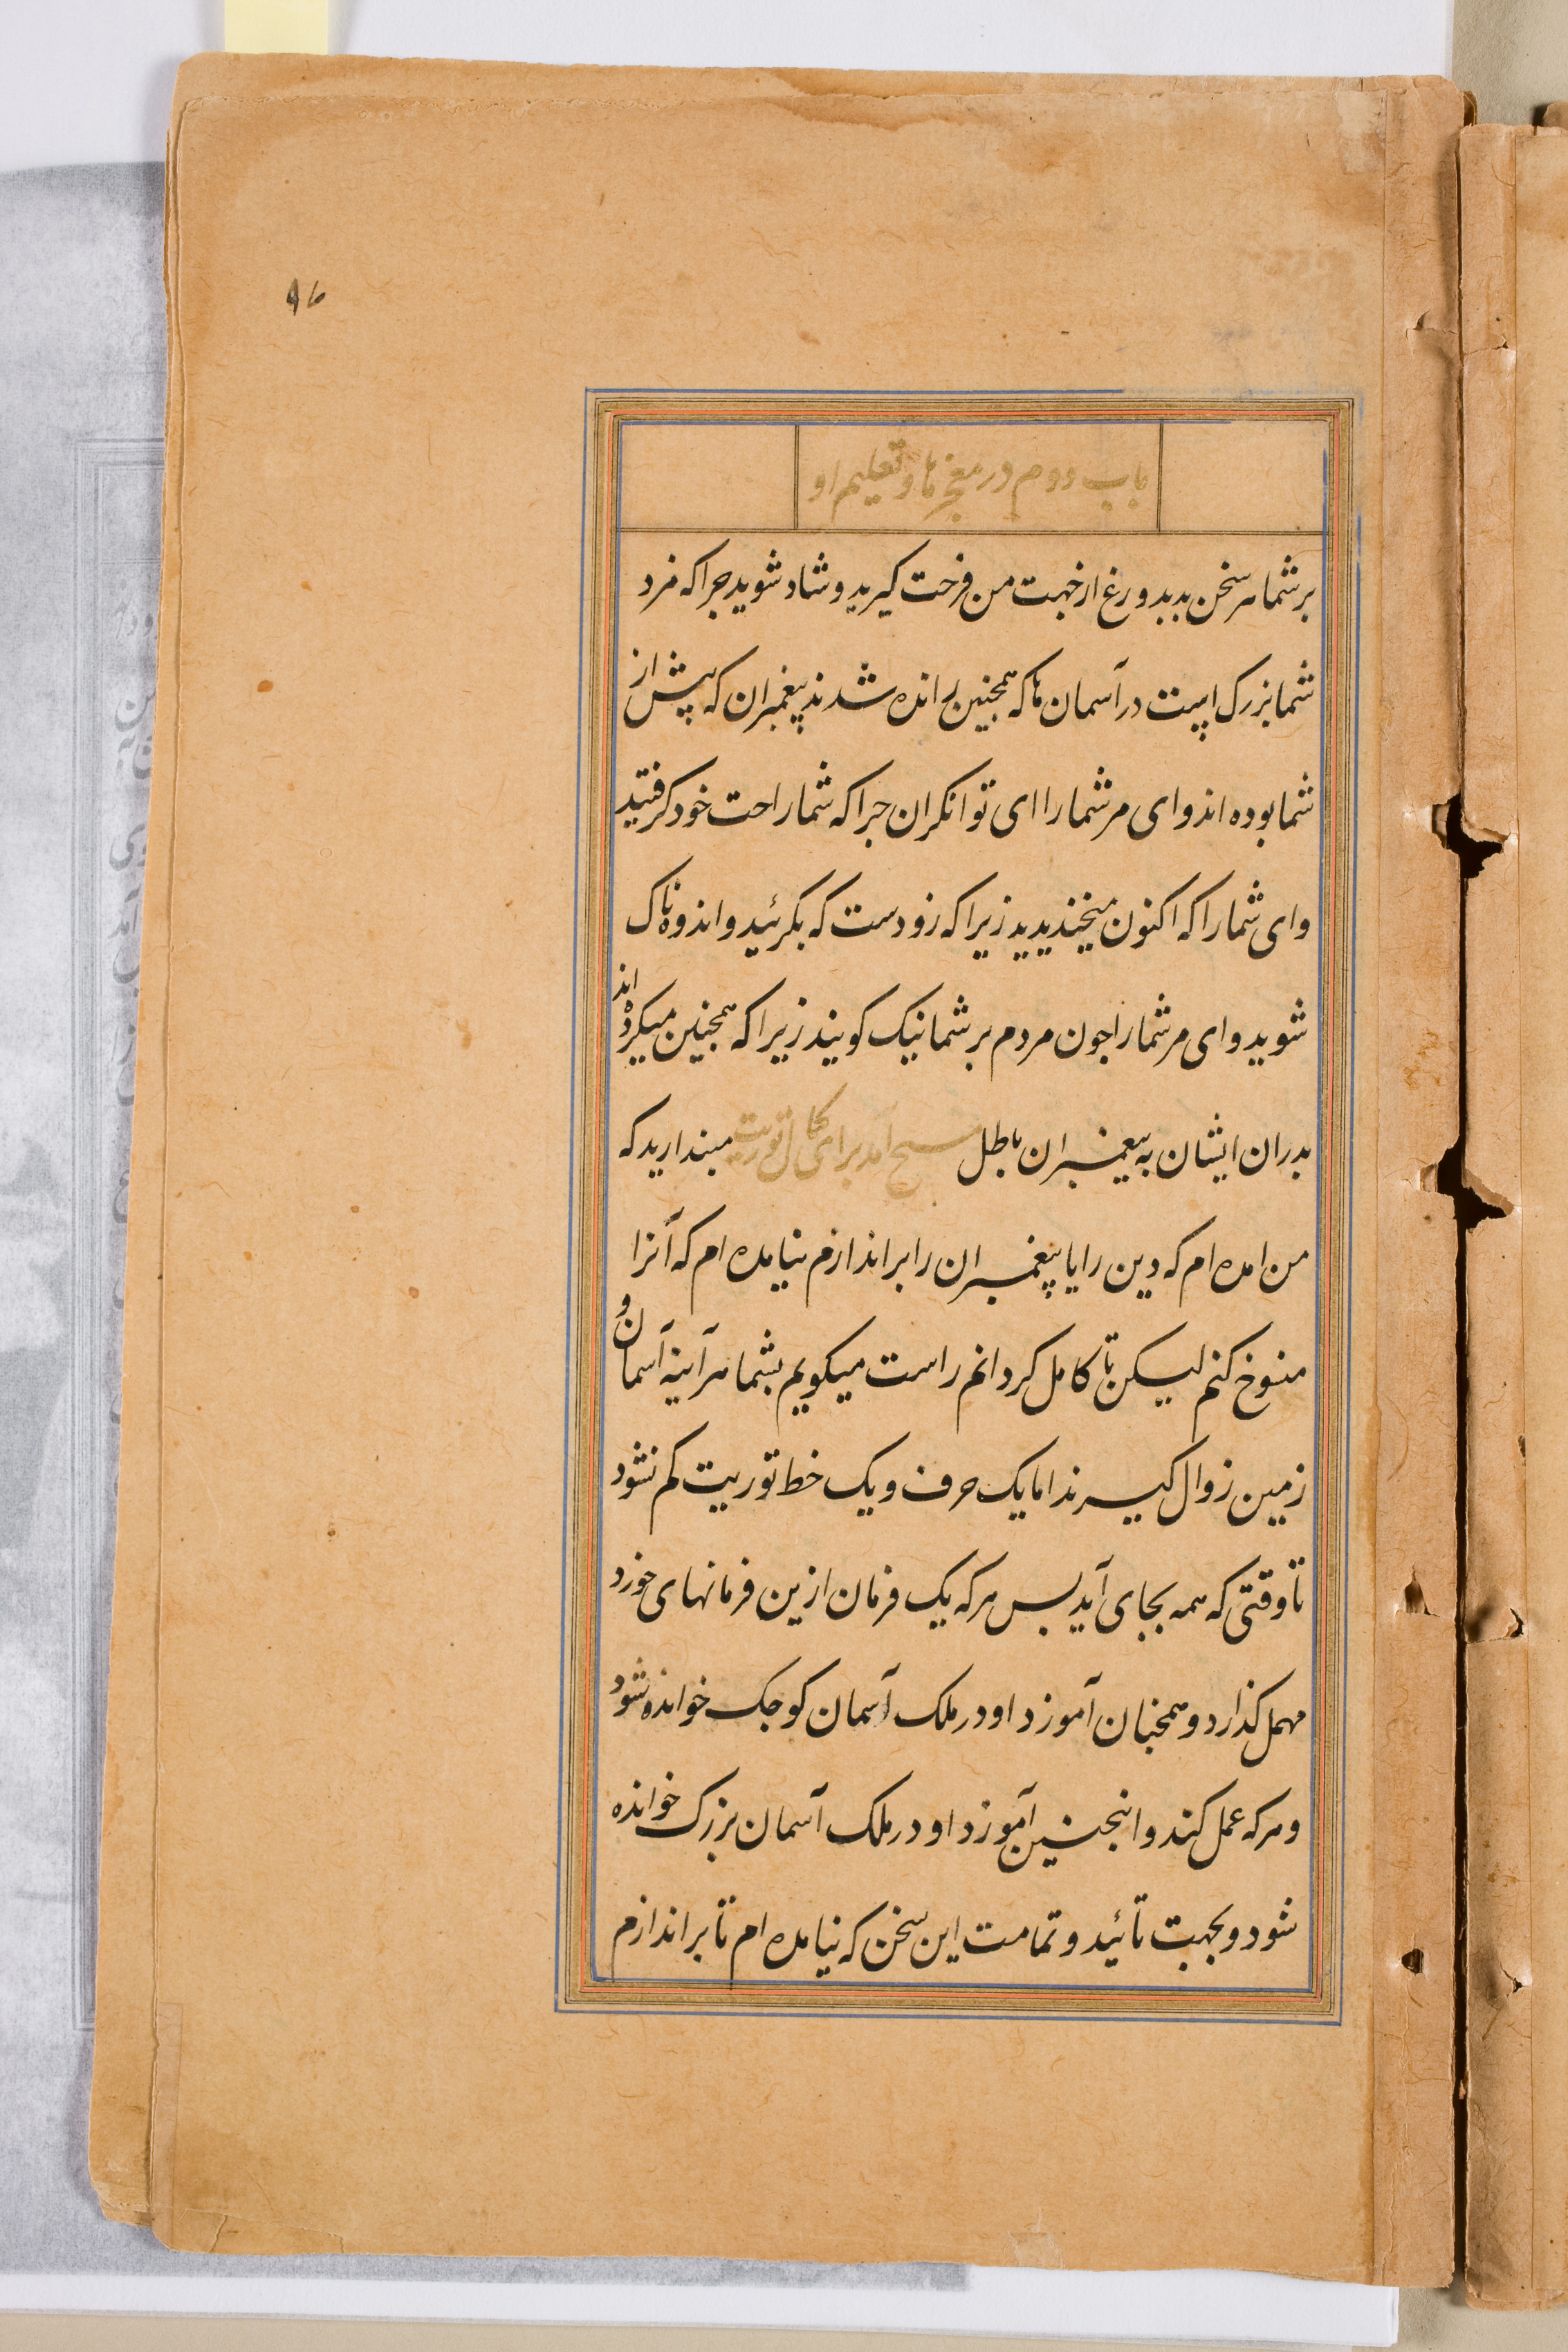 ٩٦
باب دوم در معجزها و تعلیم او
بر شما هر سخن بد بدروغ از جهت من فرحت کیرید و شاد شوید جرا که مزد
شما بزرک است در آسمان ها که همجنین رانده شدند پیغمبران که پیش از
شما بوده اند وای مر شما را ای توانکران جرا که شما راحت خود کرفتید
وای شما را که اکنون میخندیدید زیرا که زودست که بکرئید و اندوه ناک
شوید وای مر شما را جون مردم بر شما نیک کویند زیرا که همجنین میکرده اند
بدران ایشان به پیغمبران باطل مسیح آمد برای کمال توریت مبندارید که
من امده ام که دین را یا پیغمبران را براندازم نیامده ام که آنرا
منسوخ کنم لیسکن تا کامل کردانم راست میکویم بشما هرآینه آسمان و
زمین زوال کیرند اما یک حرف و یک خط توریت کم نشود
تا وقتی که همه بجای آید بس هر که یک فرمان ازین فرمانهای خورد
مهمل کذارد و همجنان آموزد او در ملک آسمان کوجک خوانده شود
و هر که عمل کند و اینجنین آموزد او در ملک آسمان بزرک خوانده
شود و بجهت تائید و تمامت این سخن که نیامده ام تا براندازم